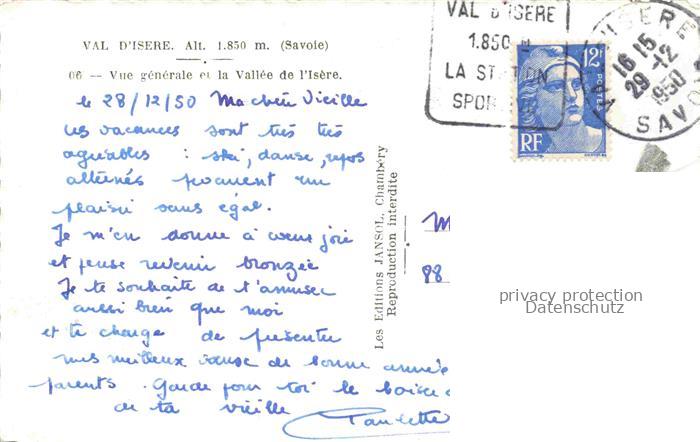 VAL D'ISERE. Alt. 1.850 m. (Savoie)
06 — Vue générale et la Vallée de l'Isère.
VAL D'ISERE
1.850 M
LA STATION
SPORTIVE
12F
POSTES
RF
VAL D'ISERE
16 15
29-12
1950
SAVOIE
le 28/12/50 Ma chère Vieille
Les vacances sont très très
agréables : ski, danse, repos
alternés procurent un
plaisir sans égal.
Je m'en donne à cœur joie
et pense revenir bronzée
Je te souhaite de t'amuser
aussi bien que moi
et te charge de présenter
mes meilleurs vœux de bonne année
parents. Garde pour toi le
de ta vieille Paulette
Les Editions JANSOL, Chambéry
Reproduction interdite
M
88
privacy protection
Datenschutz